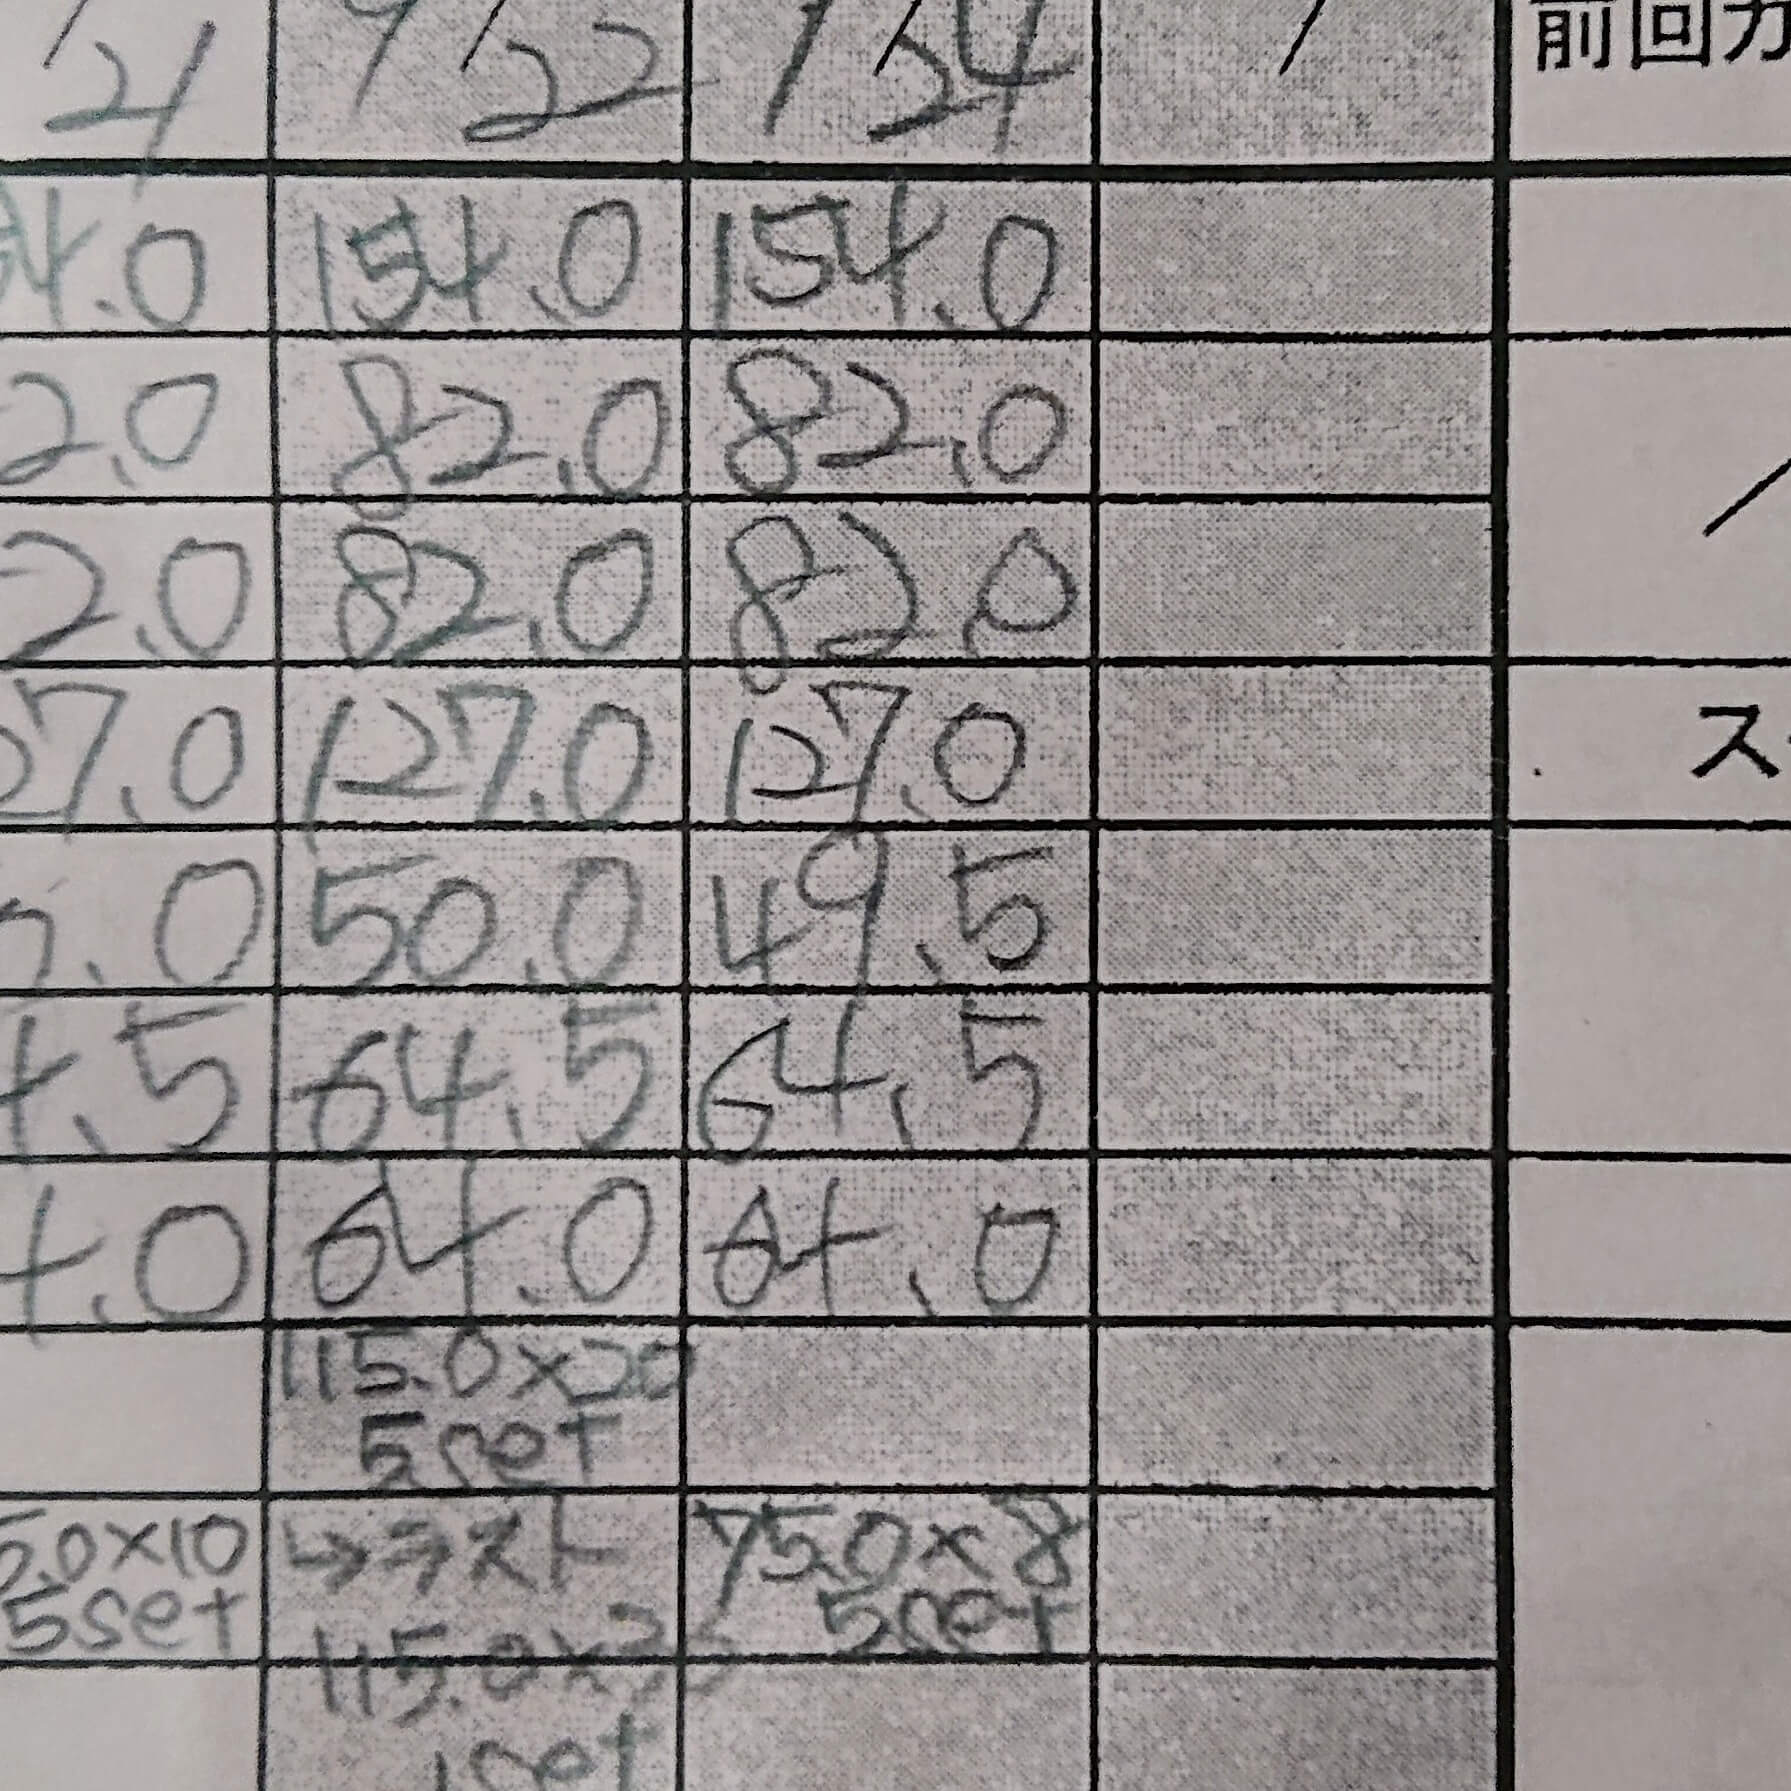 /21 9/22 /24 / 前回
4.0 154.0 154.0
2.0 82.0 82.0
2.0 82.0 82.0
27.0 127.0 127.0 ス
.0 50.0 49.5
4.5 64.5 64.5
4.0 64.0 64.0
115.0×20
5set
5.0×10 →ラスト 75.0×8
5set 5set
115.0×
1set